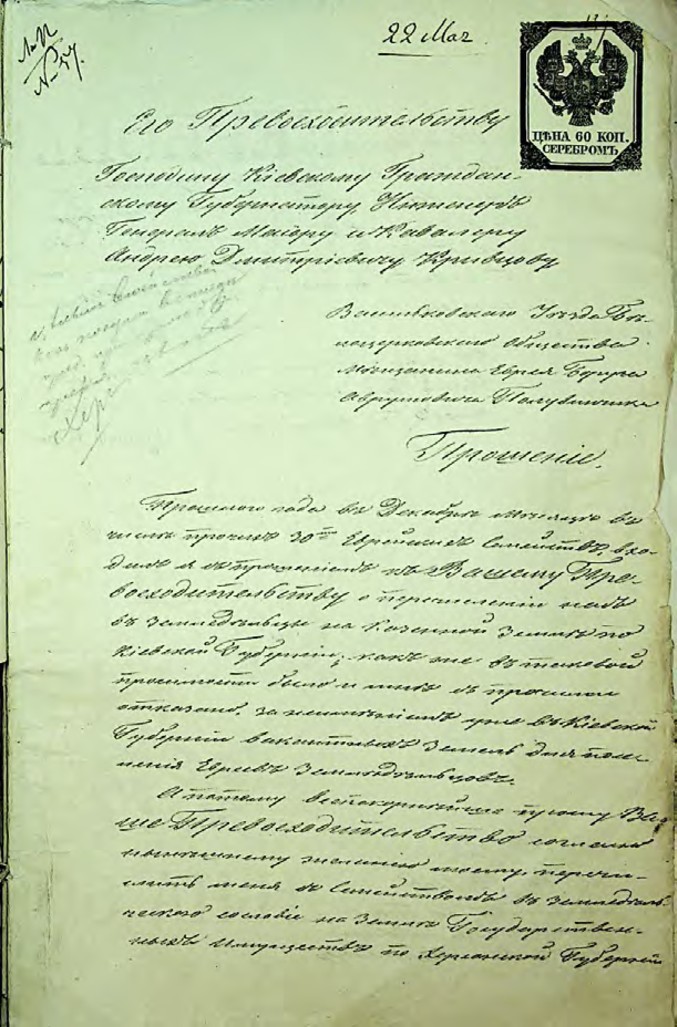 22 Мая
ЦѢНА 60 КОП.
СЕРЕБРОМЪ.
Его Превосходительству
Господину Кіевскому Граждан-
скому Губернатору, Инженеръ
Генералъ Маіору и Кавалеру
Андрею Дмитріевичу Кривцову
Васильковскаго Уѣзда Бѣ-
лоцерковскаго общества
мѣщанина Еврея
Прошеніе.
Прошлого года въ Декабрѣ мѣсяцѣ въ
числѣ прочихъ 30ти Еврейскихъ Семействъ, вхо-
дилъ я съ прошеніемъ къ Вашему Пре-
восходительству о перечисленіи насъ
въ земледѣльцы на казенной землѣ по
Кіевской Губерніи; какъ же въ таковой
было и мнѣ съ прочими
отказано, за неимѣніемъ уже въ Кіевской
Губерніи вакантныхъ земель для
Евреевъ Земледѣльцовъ.
А потому всепокорнѣйше прошу Ва-
ше Превосходительство согласно
нынѣшнему желанію моему, перечи-
слить меня съ Семействомъ въ земледѣль-
ческое сословіе на землѣ Государствен-
ныхъ Имуществъ по Херсонской Губерніи